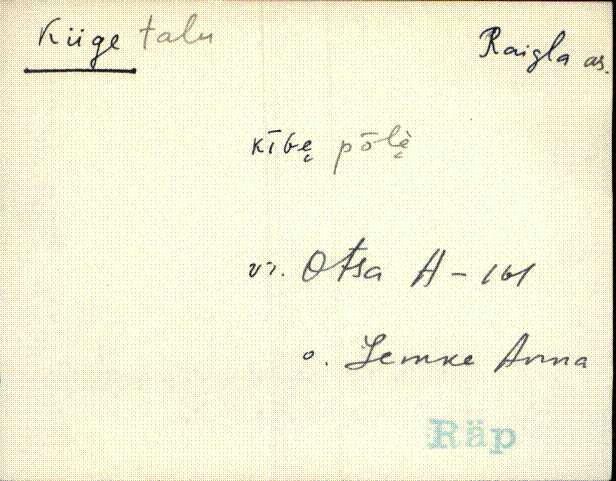 Kiige talu
Raigla as.
pōlè̬
vr. Otsa A-161
o. Lemke Anna
Räp